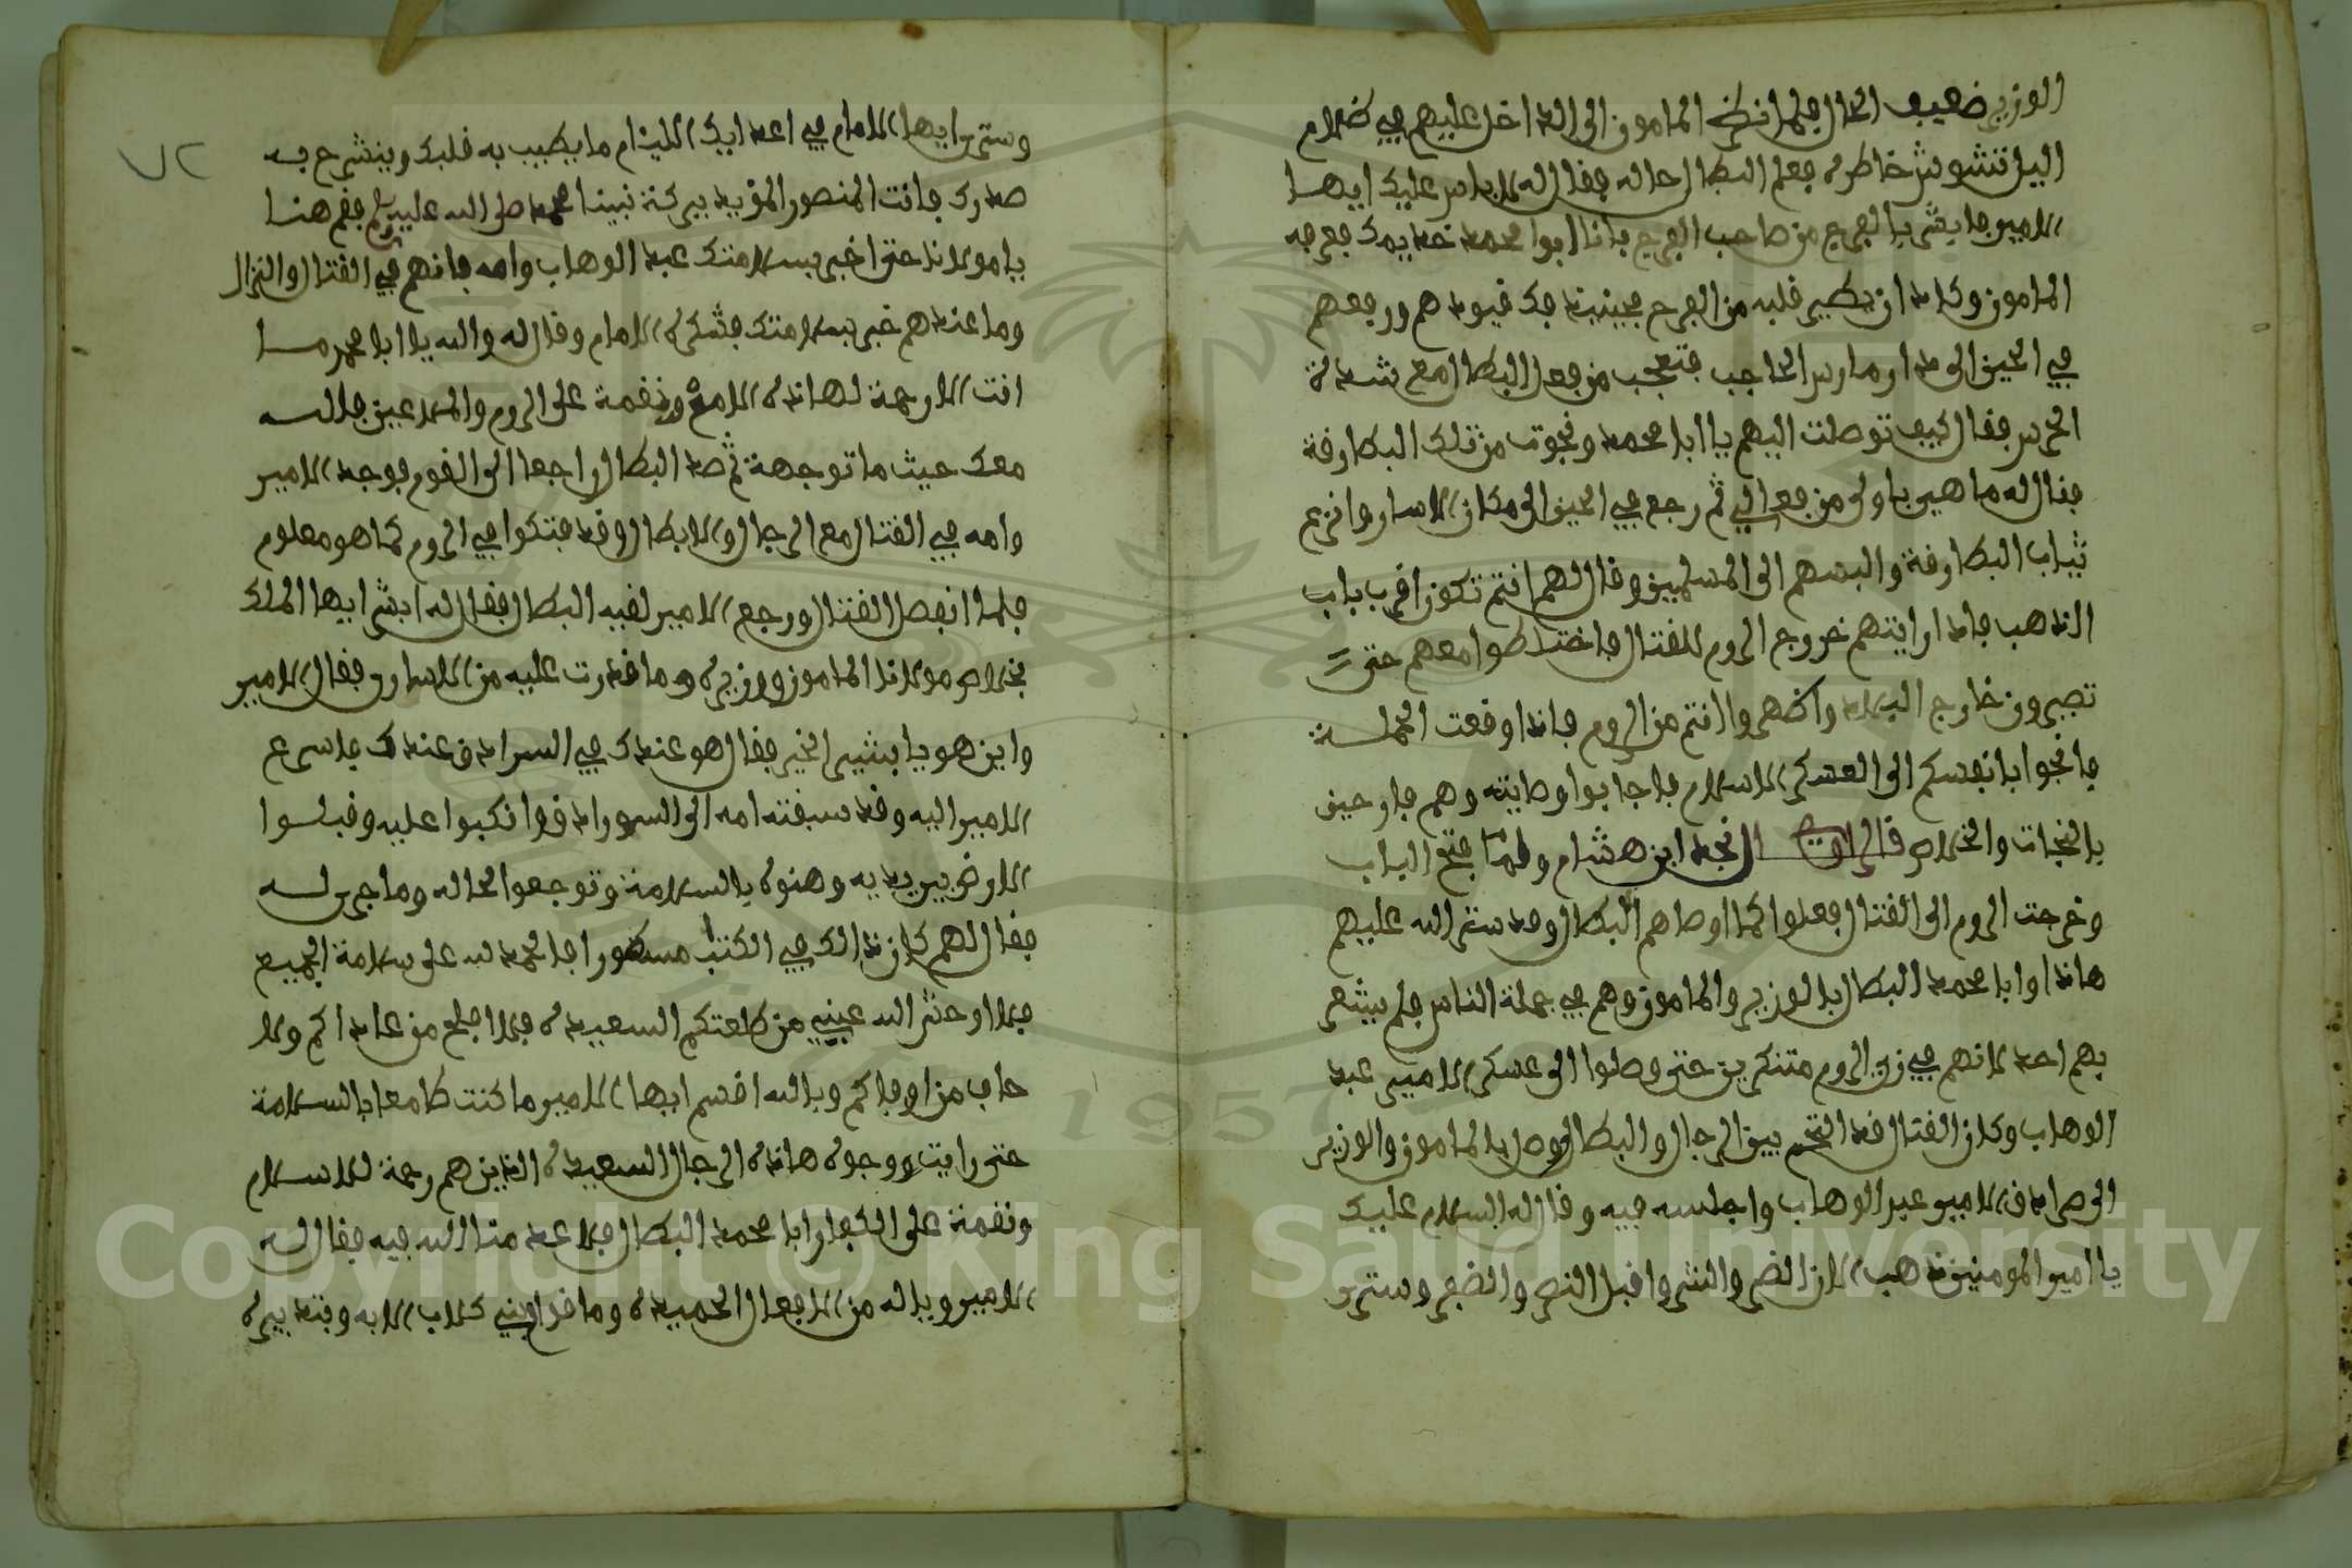 الوزير ضعيف الحال فلما نظر المامون الى الداخل عليهم في ظلام
اليل تشوش خاطره فعلم البطال حاله فقال له لاباس عليك ايها
الامير فابشر بالفرج من صاحب الفرج فانا ابوا محمد خديمك ففرح
المامون وكاد ان يطير قلبه من الفرح فحينيذ فك قيودهم ورفعهم
في الحين الى دار مارس الحاجب فتعجب من فعل البطال مع شدة
الحرس فقال كيف توصلت اليهم يا ابا محمد ونجوت من تلك البطارقة
فقال له ما هي باولى من فعالي ثم رجع في الحين الى مكان الاسارا ونزع
ثياب البطارقة والبسهم الى المسلمين وقال لهم انتم تكون اقرب باب
الذهب فاذا رايتهم خروج الروم للقتال فاختلطوا معهم حتى
تصيرون خارج البلاد واظهروا انتم من الروم فاذا وقعت الحملة
فانجوا بانفسكم الى العسكر الاسلام فاجابوا وصايته وهم فارحين
بالنجات والخلاص قال الراوي نجد ابن هشام ولما فتح الباب
وخرجت الروم الى القتال فعلوا كما اوصاهم البطال وقد ستر الله عليهم
هاذا وابا محمد البطال بالوزير والمامون وهم في جملة الناس فلم يشعر
بهم احد لانهم في زي الروم متنكرين حتى وصلوا الى عسكر الامير عبد
الوهاب وكان القتال قد التحم بين الرجال والبطال وصل بالمامون والوزير
الى صرادق الامير عبد الوهاب واجلسه فيه وقال له السلام عليك
يا امير المومنين ذهب الان الضر والشر واقبل النصر والظفر وسترى
وسترى ايها الامام في اعدايك الليام ما يطيب به قلبك وينشرح به
صدرك فانت المنصور المؤيد ببركة نبينا محمد صلى الله عليه وسلم فقم هنا
يا مولانا حتى اخبر بسلامتك عبد الوهاب وامه فانهم في القتال والنزال
وما عندهم خبر بسلامتك فشكره الامام وقال له والله يا ابا محمد ما
انت الا رحمة لهاذه الامة ونقمة على الروم والملاعين فالله
معك حيث ما توجهة ثم صد البطال راجعا الى القوم فوجد الامير
وامه في القتال مع الرجال والابطال وقد فتكوا في الروم كما هو معلوم
فلما انفصل القتال ورجع الامير لقيه البطال فقال له ابشر ايها الملك
بخلاص مولانا المامون ووزيره وما قدرت عليه من الاسارى فقال الامير
واين هو يا بشير الخير فقال هو عندك في السرادق عندك فاسرع
الامير اليه وقد سبقته امه الى السرادق وانكبوا عليه وقبلوا
الارض بين يديه وهنوه بالسلامة وتوجعوا لحاله وما جرى له
فقال لهم كان ذالك في الكتاب مسطورا فالحمد لله على سلامة الجميع
فلا اوحش الله عيني من طلعتكم السعيدة فلا افلح من عاداكم ولا
خاب من اوفاكم وبالله اقسم ايها الامير ما كنت طامعا بالسلامة
حتى رايت ووجوه هاذه الرجال السعيدة الذين هم رحمة للاسلام
ونقمة على الكفار ابا محمد البطال فلا عدمنا الله فيه فقال له
الامير وياله من الافعال الحميدة وما فرا عيني كلاب الا به وبتدبيره
٧٢